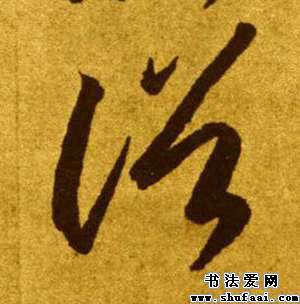 俗
书法爱网
www.shufaai.com